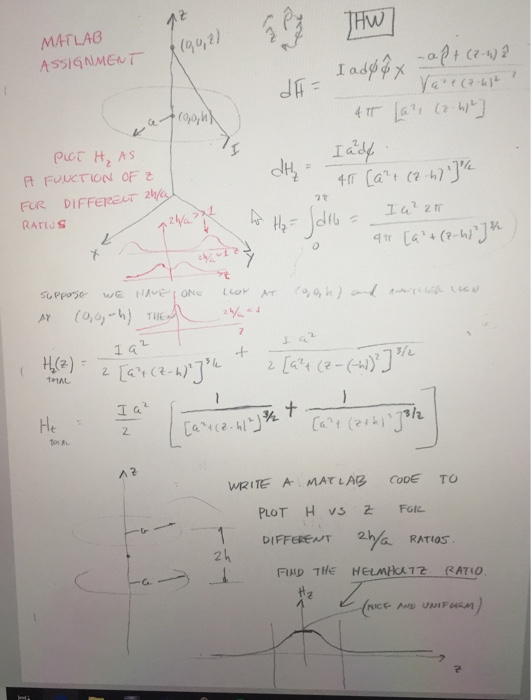 MATLAB
ASSIGNMENT
z
(0,0,z)
a
(0,0,h)
I
HW
dH̄ = I a dφ φ̂ × -aρ̂ + (z-h) ẑ
√a² + (z-h)²
4π [a² + (z-h)²]
PLOT Hz AS
A FUNCTION OF Z
FOR DIFFERENT 2h/a
RATIOS
dHz = I a² dφ
4π [a² + (z-h)²]^3/2
Hz = ∫ dHz = I a² 2π
2π
0
4π [a² + (z-h)²]^3/2
x
y
2h/a >> 1
z
2h/a
z
SUPPOSE WE HAVE ONE LOOP AT (0,0,h) and
AT (0,0,-h) THEN
z
Hz(z) = I a² + I a²
TOTAL 2 [a² + (z-h)²]^3/2 2 [a² + (z-(-h))²]^3/2
Ht = I a² [ 1 + 1 ]
TOTAL 2 [a² + (z-h)²]^3/2 [a² + (z+h)²]^3/2
z
a
2h
a
WRITE A MATLAB CODE TO
PLOT H VS Z FOR
DIFFERENT 2h/a RATIOS.
FIND THE HELMHOLTZ RATIO
Hz
(NICE AND UNIFORM)
z